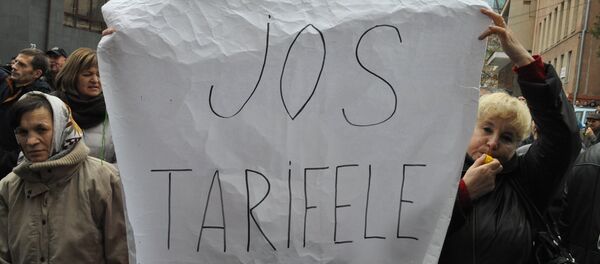 JOS
TARIFELE